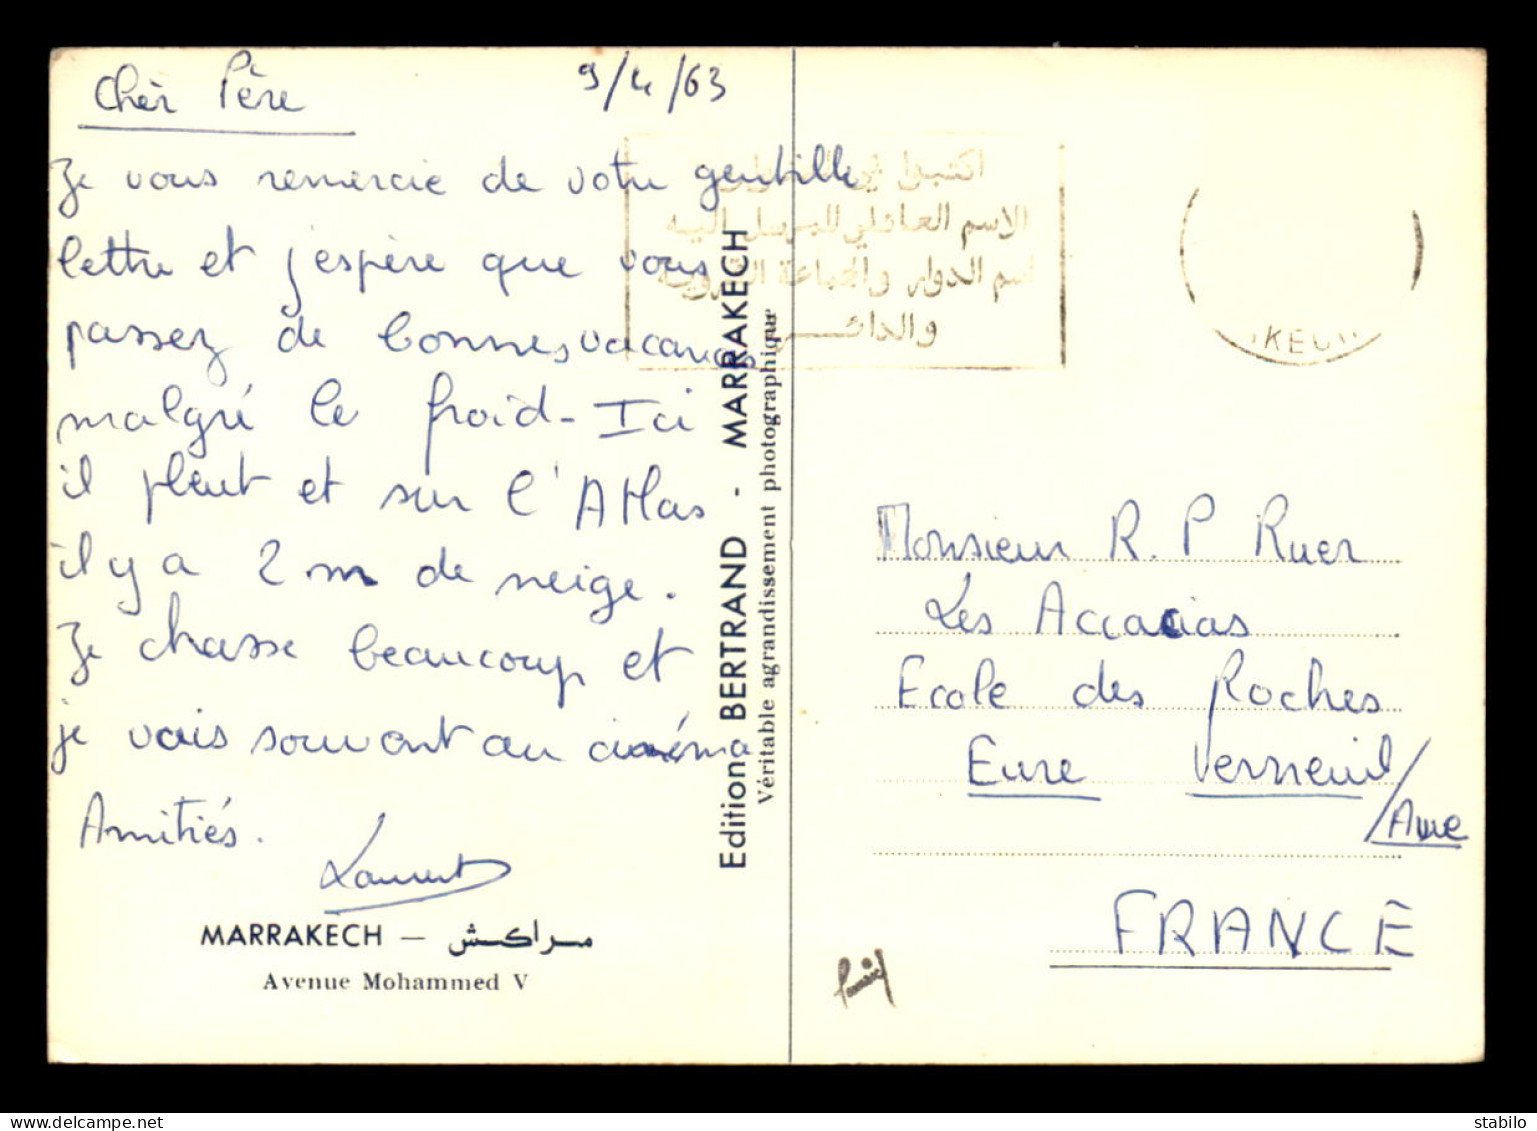 9/4/63
Cher Père
Je vous remercie de votre gentille
lettre et j'espère que vous
passez de bonnes vacances
malgré le froid - Ici
il pleut et sur l'Atlas
il y a 2 m de neige.
Je chasse beaucoup et
je vais souvent au cinéma
Amitiés.
Laurent
MARRAKECH — مراكش
Avenue Mohammed V
Editions BERTRAND - MARRAKECH
Véritable agrandissement photographique
الاسم العائلي للمرسل اليه
اسم الدوار والجماعة القروية
Monsieur R. P Ruer
Les Accacias
Ecole des Roches
Eure Verneuil
/Avre
FRANCE
delcampe.net
stabilo